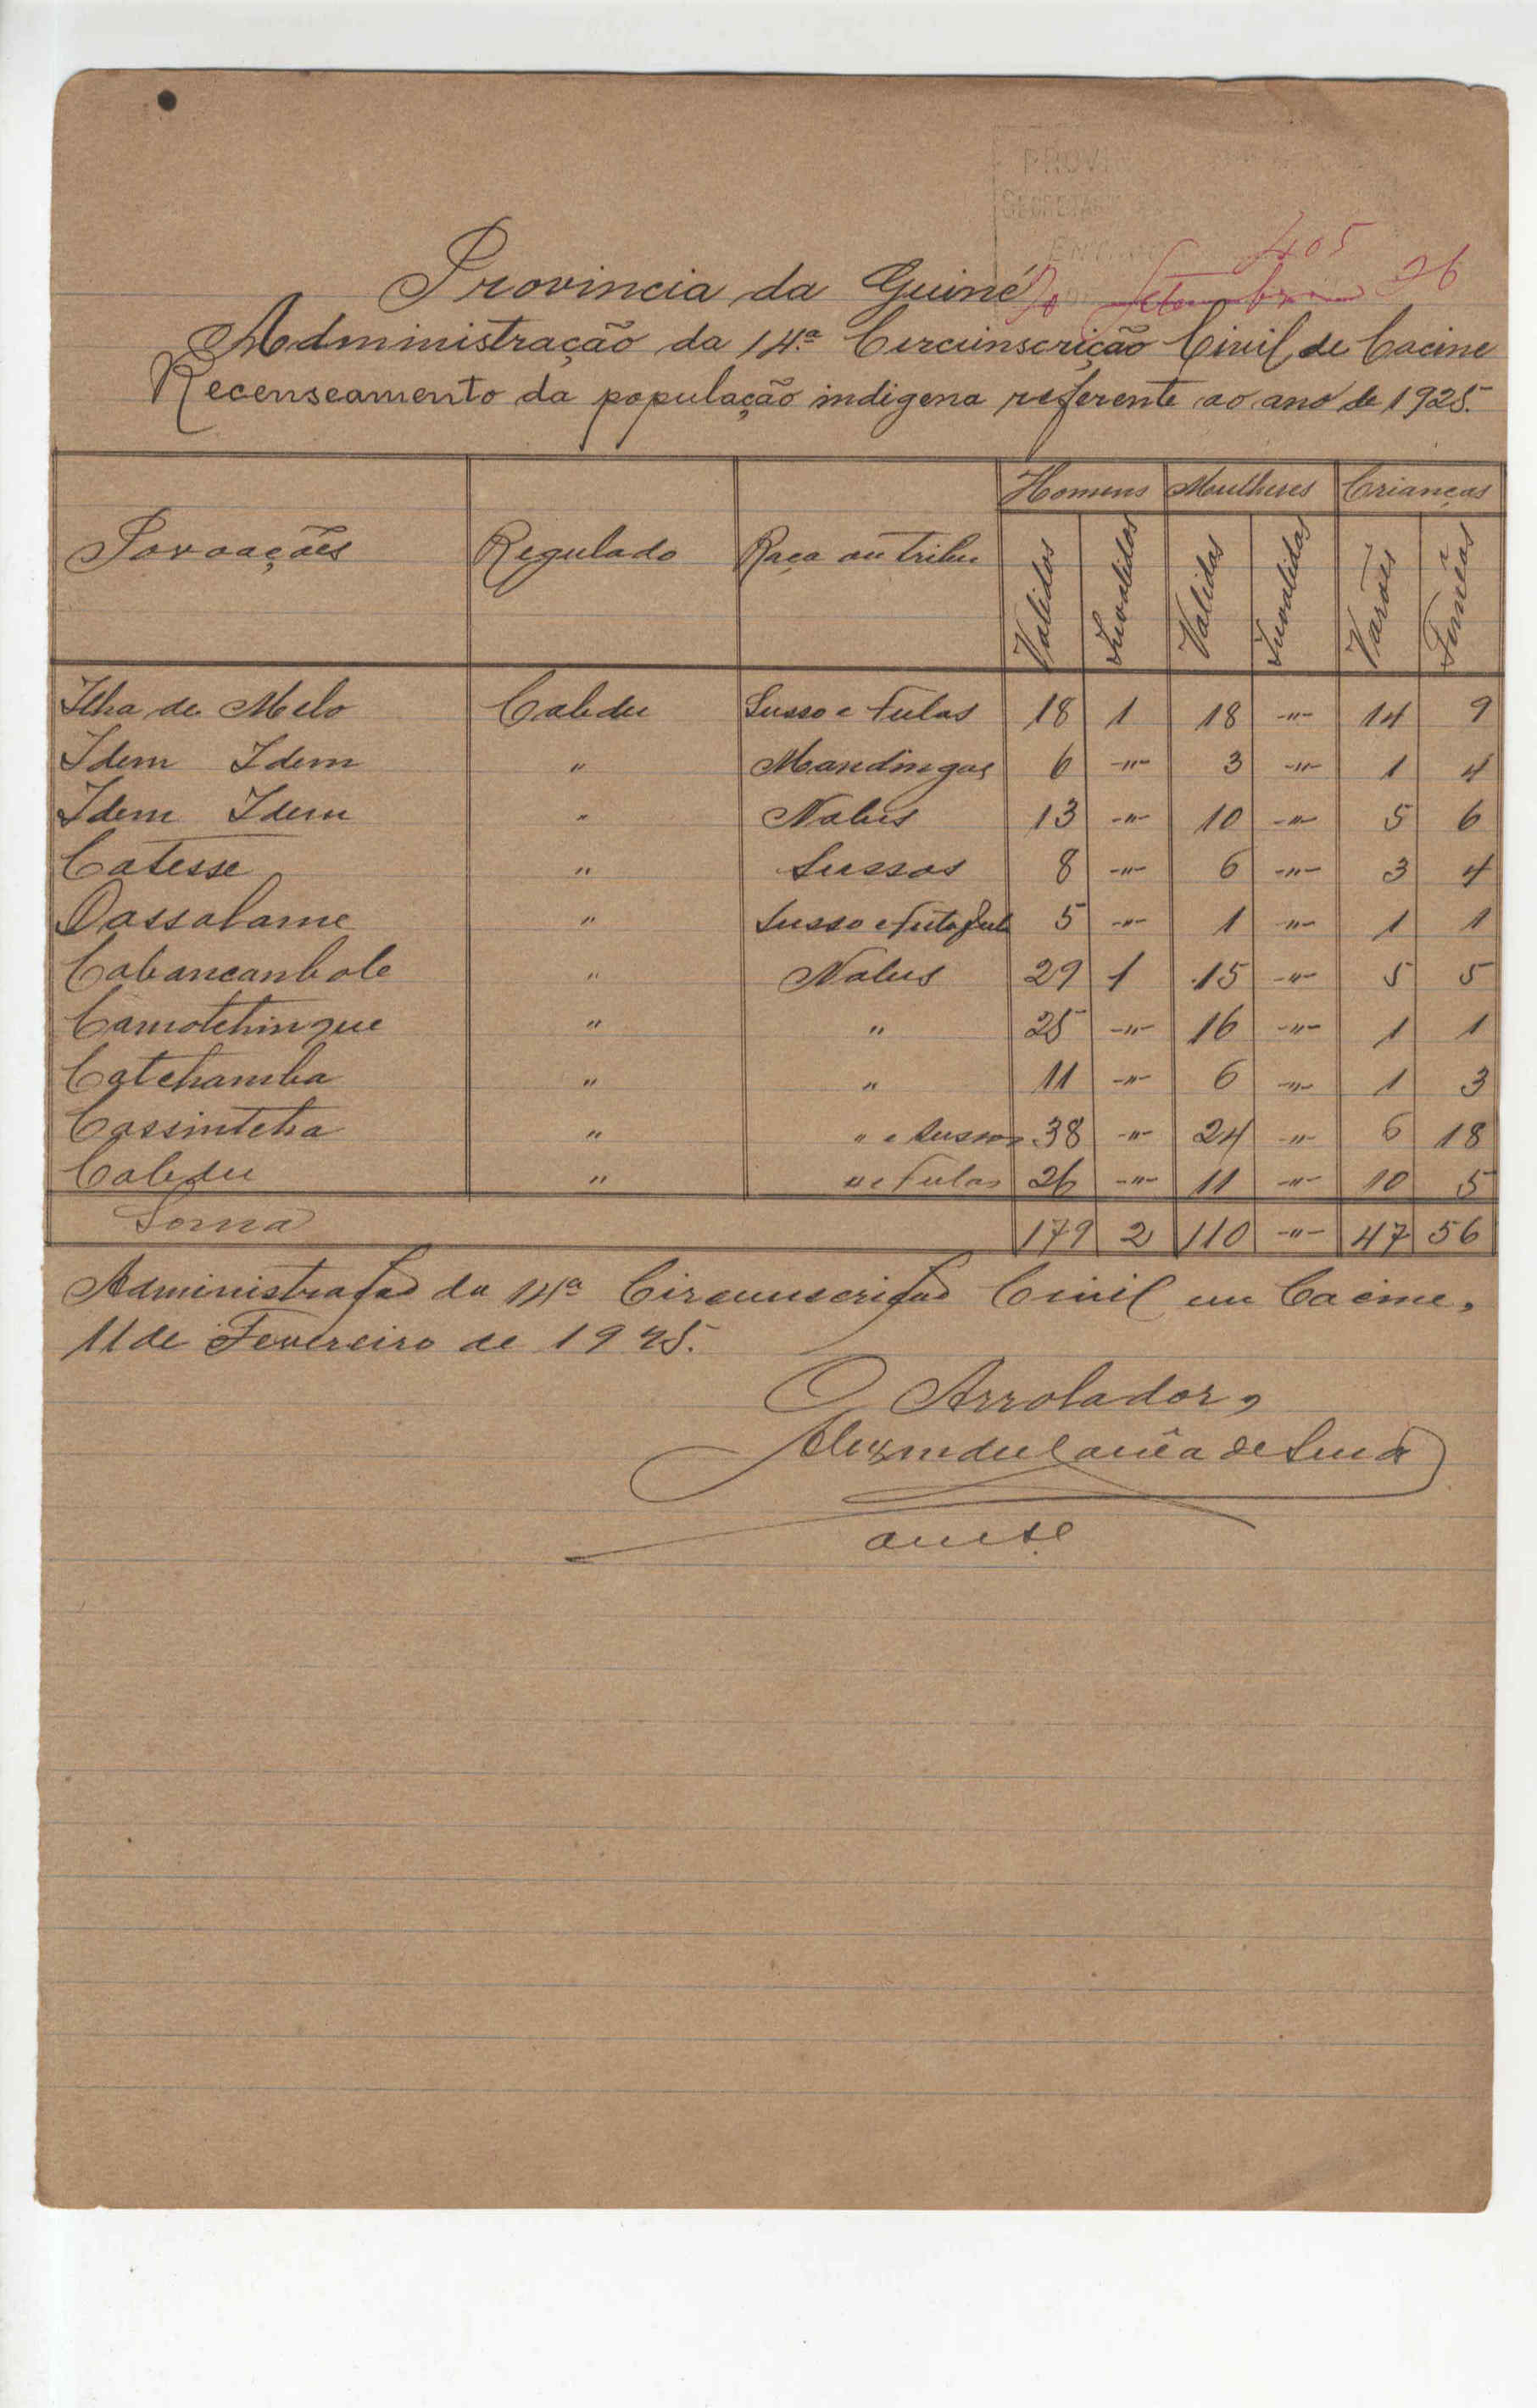 PROVIN
SECRETAR
ENT
405
Provincia da Guiné
20 Setembro 26
Administração da 14.ª Circunscrição Civil de Cacine
Recenseamento da população indigena referente ao ano de 1925.
Povoações Regulado Raça ou tribu Homens Mulheres Crianças
Validos Invalidos Validas Invalidas Varões Femêas
Ilha de Melo Cabedu Susso e Fulas 18 1 18 -"- 14 9
Idem Idem " Mandingas 6 -"- 3 -"- 1 4
Idem Idem " Nalus 13 -"- 10 -"- 5 6
Catesse " Sussos 8 -"- 6 -"- 3 4
Dassalame " Susso e futaful 5 -"- 1 -"- 1 1
Cabancanbole " Nalus 29 1 15 -"- 5 5
Camotchingue " " 25 -"- 16 -"- 1 1
Catchamba " " 11 -"- 6 -"- 1 3
Cassintcha " " e Sussos 38 -"- 24 -"- 6 18
Cabedu " " e Fulas 26 -"- 11 -"- 10 5
Soma 179 2 110 -"- 47 56
Administração da 14ª Circunscrição Civil em Cacine,
11 de Fevereiro de 1925.
O Arrolador,
de